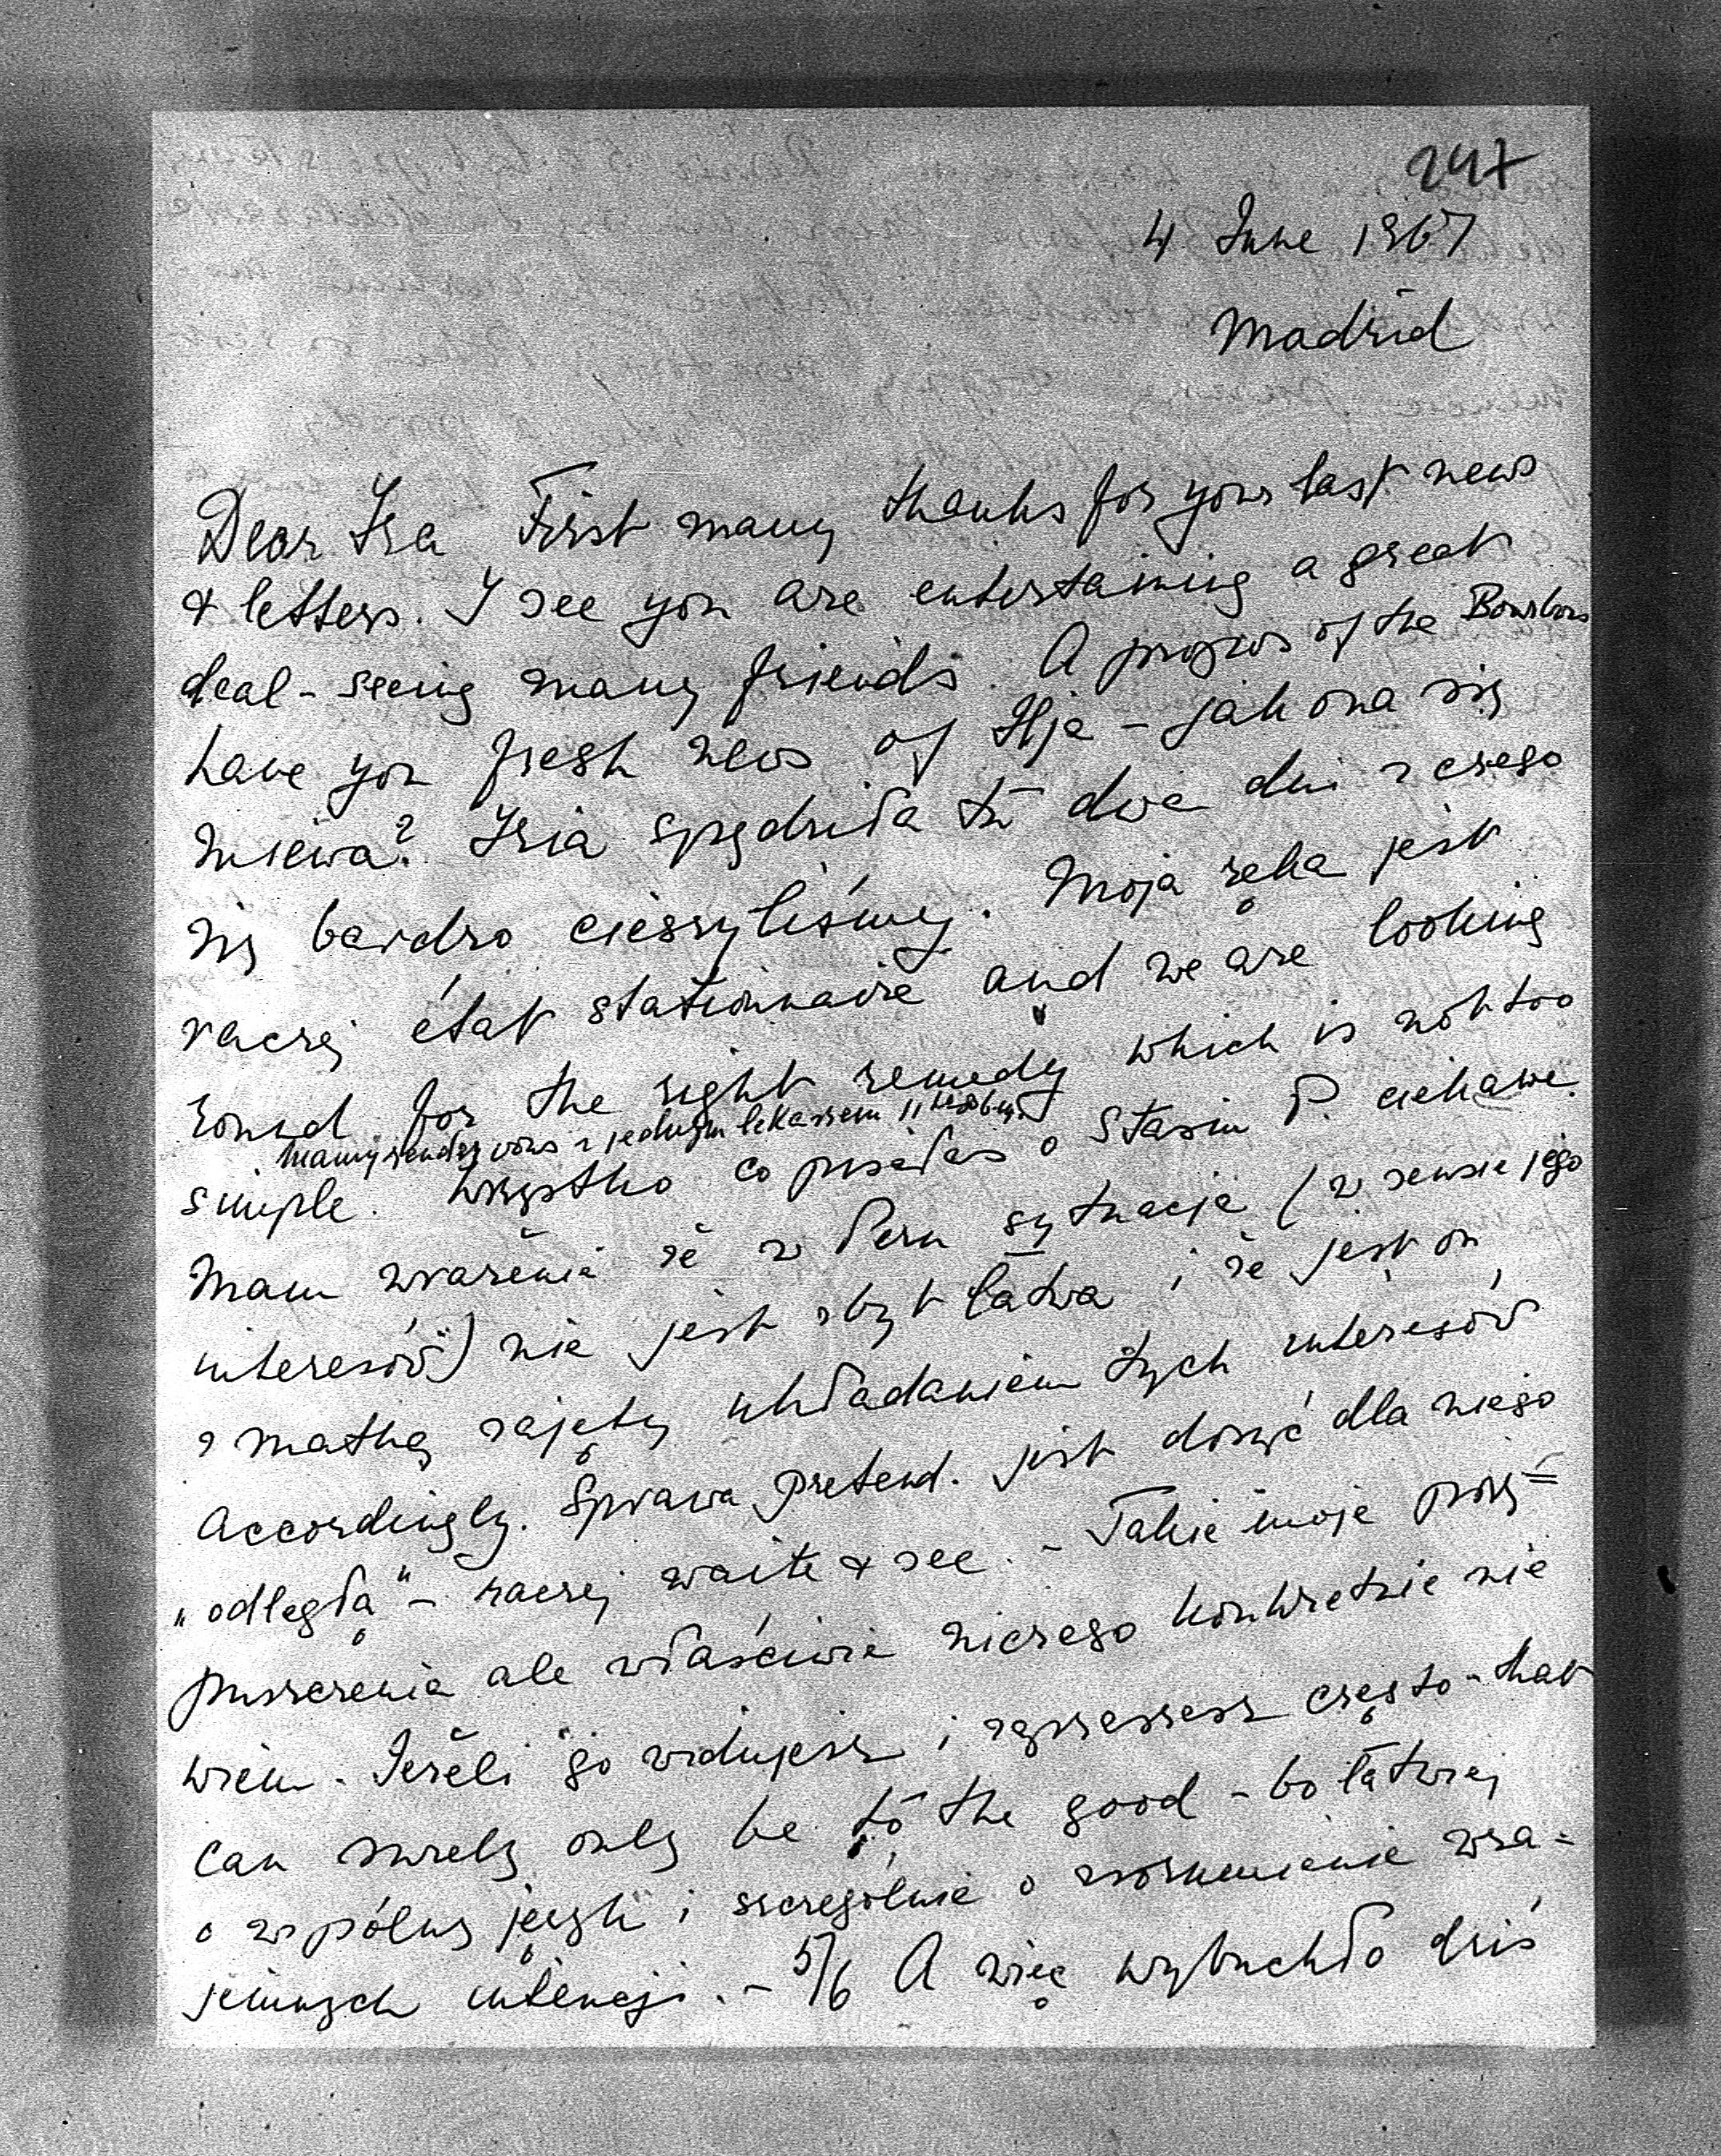 247
4 June 1967
Madrid
Dear Isa First many thanks for your last news
& letters. I see you are entertaining a great
deal - seeing many friends. A propos of the Bourbons
have you fresh news of - jak ona się
miewa? Isia spędziła tu dwa dni z czego
się bardzo cieszyliśmy. Moja ręka jest
raczej état stationnaire and we are looking
round for the right remedy which is not too
mamy rendez vous z jednym lekarzem
simple. Wszystko co pisałaś o Stasiu P. ciekawe
Mam wrażenie że w Peru sytuacja (w sensie jego
interesów) nie jest zbyt łatwa i że jest on
z matką zajęty układaniem tych interesów
accordingly. Sprawa pretend. jest dosyć dla niego
„odległa" - raczej waite & see. - Takie moje przy=
puszczenia ale właściwie niczego konkretnie nie
wiem. Jeżeli go widujesz i często - that
can surely only be to the good - bo łatwiej
o wspólny język i szczególnie o zrozumienie wza=
jemnych intencji. - 5/6 A więc wybuchło dziś